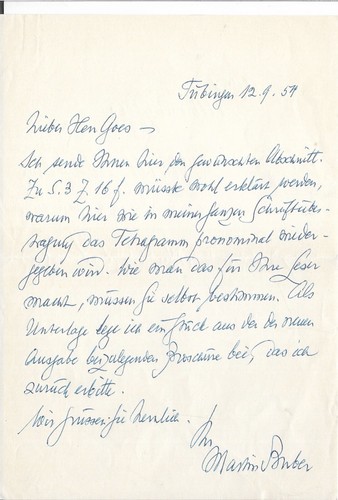 Tübingen 12.9.54
Lieber Herr Goes –
Ich sende Ihnen hier den gewünschten Abschnitt.
Zu S. 3 Z. 16 f. müsste wohl erklärt werden,
warum hier wie in meiner ganzen Schriftüber-
tragung das Tetragramm pronominal wieder-
gegeben wird. Wie man das für Ihre Leser
macht, müssen Sie selbst bestimmen. Als
Unterlage lege ich ein Stück aus der der neuen
Ausgabe beizulegenden Broschüre bei, das ich
zurück erbitte.
Wir grüssen Sie herzlich.
Ihr
Martin Buber